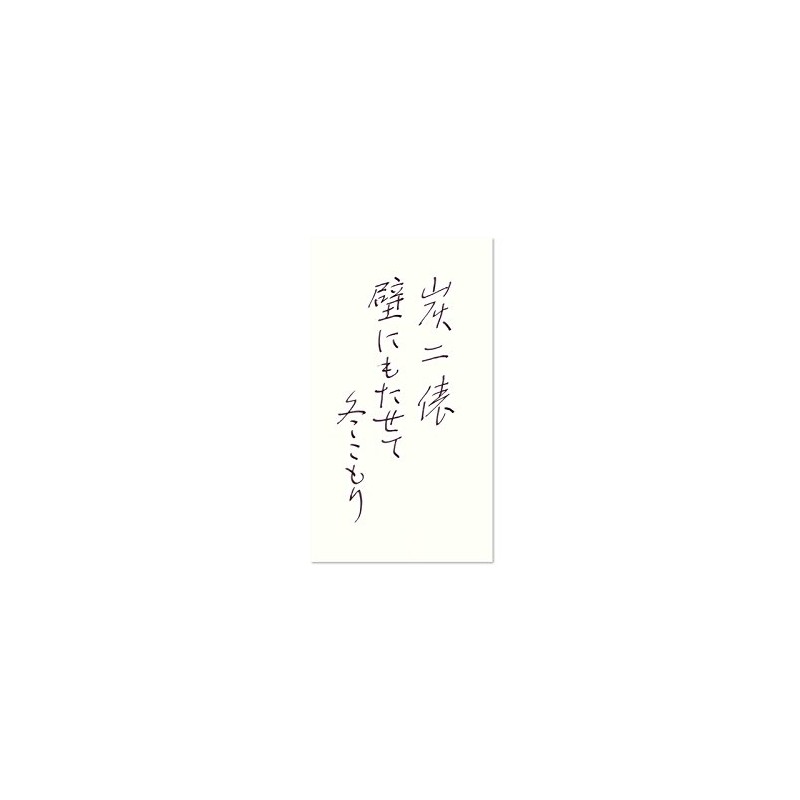 炭二俵
壁にもたせて
冬こもり